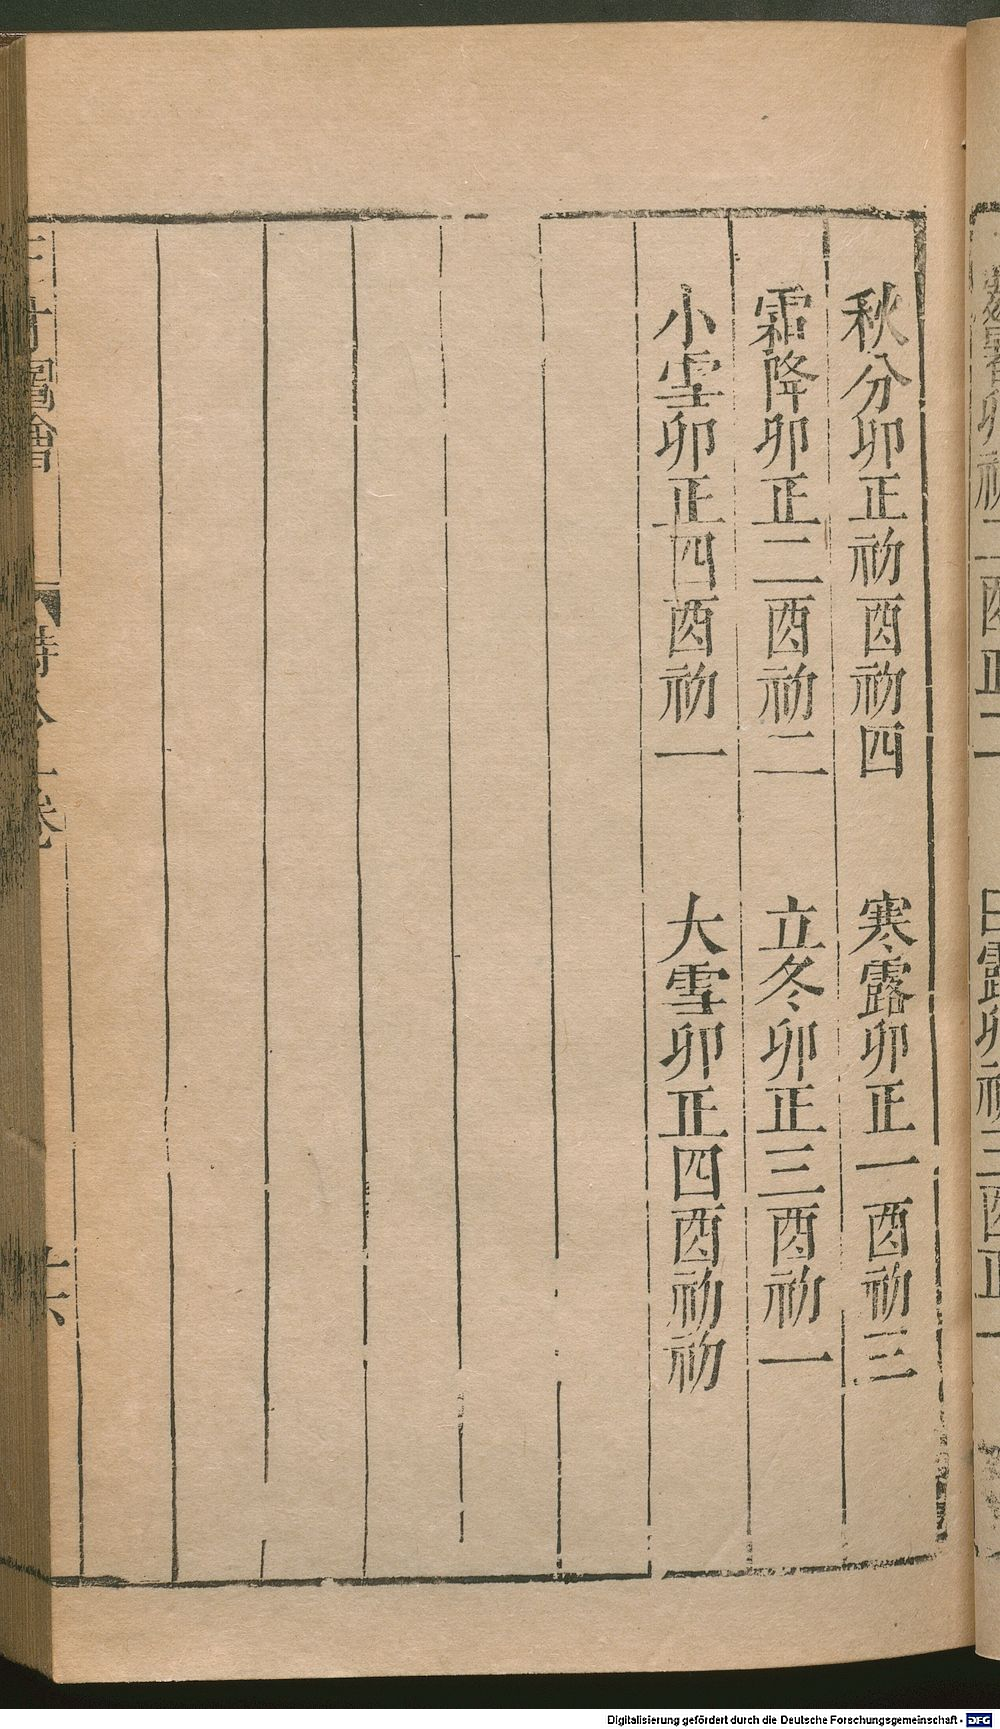 秋分卯正初酉初四　寒露卯正一酉初三
霜降卯正二酉初二　立冬卯正三酉初一
小雪卯正四酉初一　大雪卯正四酉初初
三才圖會　時令一卷　十六
卯初二酉正二　白露卯初三酉正一
Digitalisierung gefördert durch die Deutsche Forschungsgemeinschaft - DFG